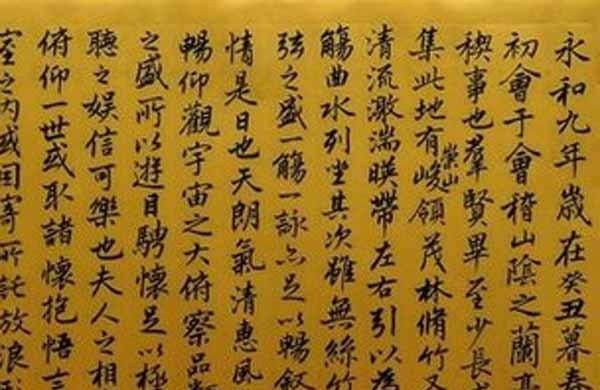 永和九年歲在癸丑暮春
初會于會稽山陰之蘭亭
稧事也羣賢畢至少長
集此地有崇山峻領茂林脩竹又
清流激湍暎帶左右引以為
觴曲水列坐其次雖無絲竹
弦之盛一觴一詠亦足以暢叙
情是日也天朗氣清惠風
暢仰觀宇宙之大俯察品類
之盛所以遊目騁懷足以極
聽之娛信可樂也夫人之相
俯仰一世或取諸懷抱悟言
室之内或因寄所託放浪